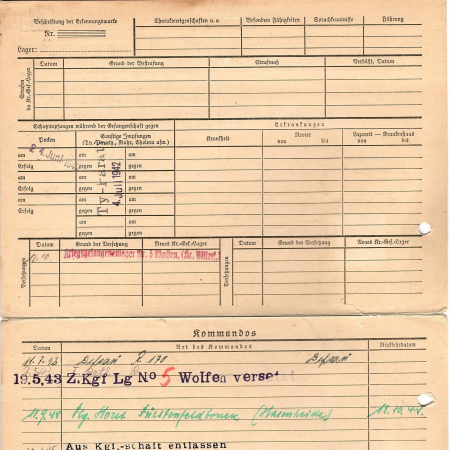 Beschriftung der Erkennungsmarke
Nr.
Lager:
Charaktereigenschaften u. a.
Besondere Fähigkeiten
Sprachkenntnisse
Führung
Strafen im Kr.-Gef.-Lager
Datum
Grund der Bestrafung
Strafmaß
Verbüßt, Datum
Schutzimpfungen während der Gefangenschaft gegen
Erkrankungen
Pocken
Sonstige Impfungen
(Ty.-Paraty., Ruhr, Cholera usw.)
Krankheit
Revier
von
bis
Lazarett — Krankenhaus
von
bis
am
am
am
2 4. Juni
4. Juli 1942
Erfolg
gegen
gegen
am
am
am
Erfolg
gegen
gegen
am
am
am
Erfolg
gegen
gegen
am
am
am
Erfolg
gegen
gegen
am
am
gegen
gegen
Versetzungen
Datum
Grund der Versetzung
Neues Kr.-Gef.-Lager
Versetzungen
Datum
Grund der Versetzung
Neues Kr.-Gef.-Lager
Kriegsgefangenenlager Nr. 5 Wolfen,
Kommandos
Datum
Art des Kommandos
Rückkehrdatum
11.7.43
Dessau
R. 170
Dessau
19.5.43 Z.Kgf Lg No 5 Wolfen versetzt
Horst Fürstenfeldbruck
Aus Kgf.-schaft entlassen